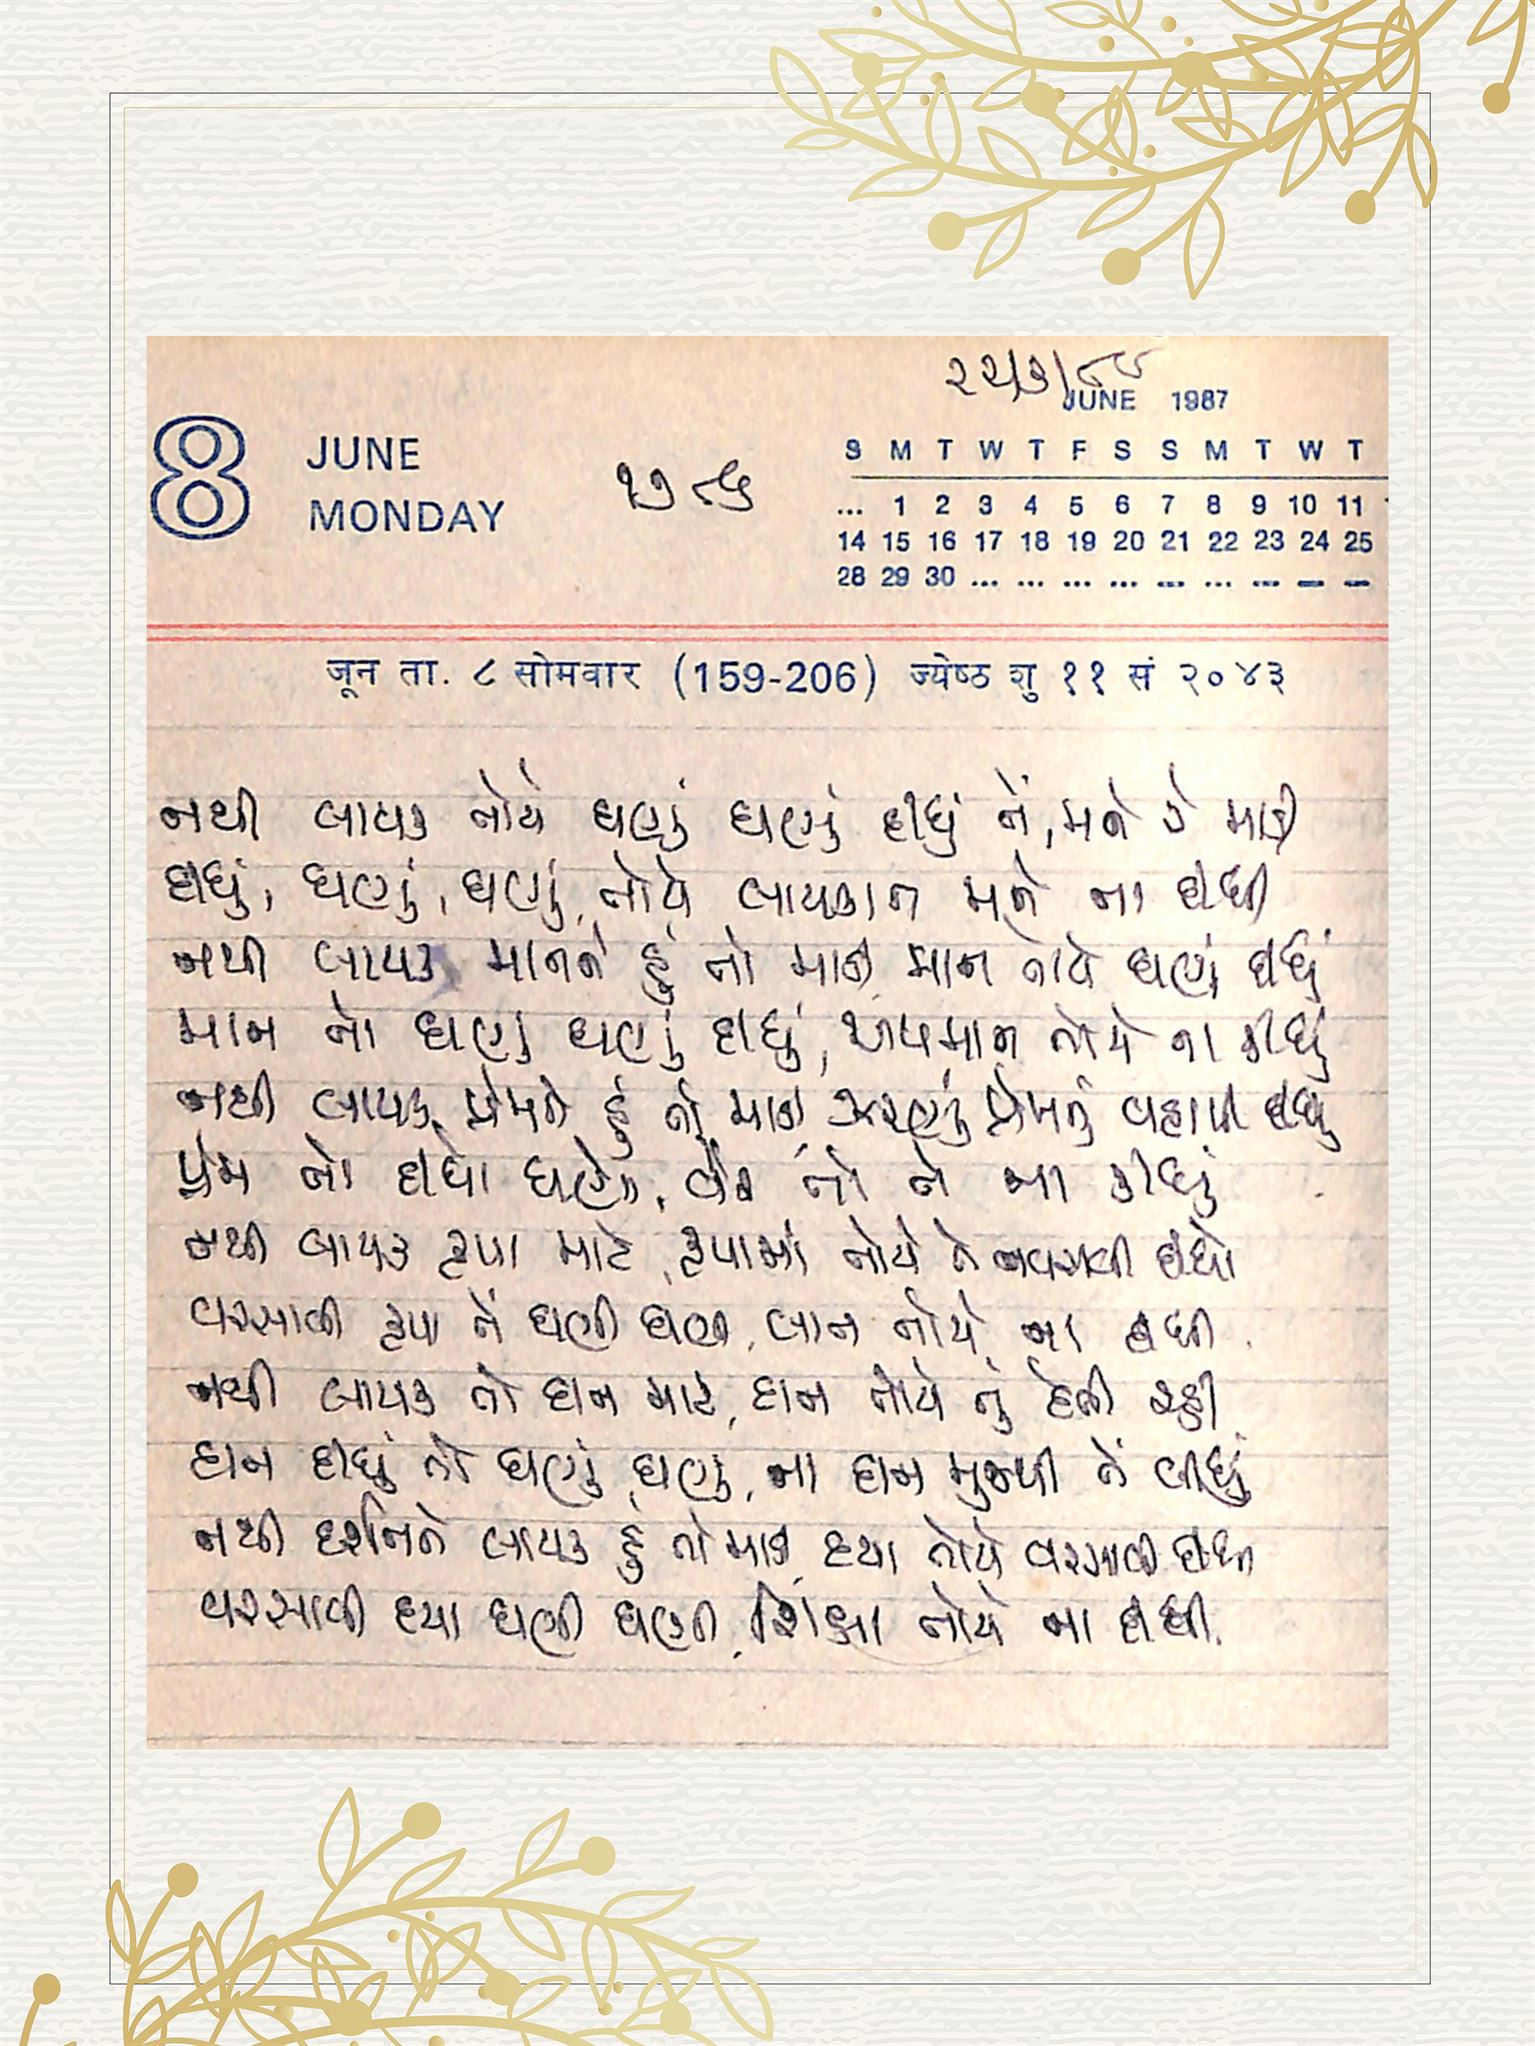 ૨૨/૩/૮૮
JUNE 1987
8 JUNE
MONDAY
૧૭૮૬
S M T W T F S S M T W T
... 1 2 3 4 5 6 7 8 9 10 11
14 15 16 17 18 19 20 21 22 23 24 25
28 29 30 ... ... ... ... ... ... ... ... ...
जून ता. ८ सोमवार (159-206) ज्येष्ठ शु ११ सं २०४३
નથી લાયક તોયે ઘણું ઘણું દીધું તેં, મને રે માડી
દીધું, ઘણું, ઘણું, તોયે લાયકાત મને ના દીધી
નથી લાયક માનને હું તો માડી, માન તોયે ઘણું દીધું
માન તો ઘણું ઘણું દીધું, અપમાન તોયે ના કીધું
નથી લાયક પ્રેમને હું તો માડી, ઝરણું પ્રેમનું વહાવી દીધું
પ્રેમ તો દીધો ઘણો, વેર તો તે ના કીધું
નથી લાયક કૃપા માટે, કૃપામાં તોયે તે નવરાવી દીધો
વરસાવી કૃપા તેં ઘણી ઘણી, લાત તોયે ના દીધી.
નથી લાયક તો દાન માટે, દાન તોયે તું દેતી રહી
દાન દીધું તો ઘણું, ઘણું, ના દાન મુજથી તેં લીધું
નથી દર્શનને લાયક હું તો માડી, દયા તોયે વરસાવી દીધી
વરસાવી દયા ઘણી ઘણી, શિક્ષા તોયે ના દીધી.